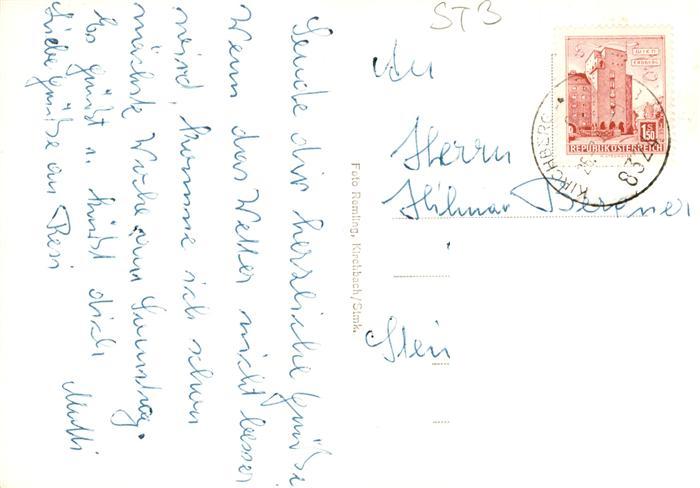 Sende dir herzliche Grüße
Wenn das Wetter nicht besser
wird, komme ich schon
nächste Woche am Samstag.
Es grüßt u. küßt dich
Mutti
Liebe Grüße an Resi
Foto Remling, Kirchbach/Stmk.
ST3
An
Herrn
Hilmar
WIEN
ERDBERG
1.50
REPUBLIK ÖSTERREICH
KIRCHBERG
832